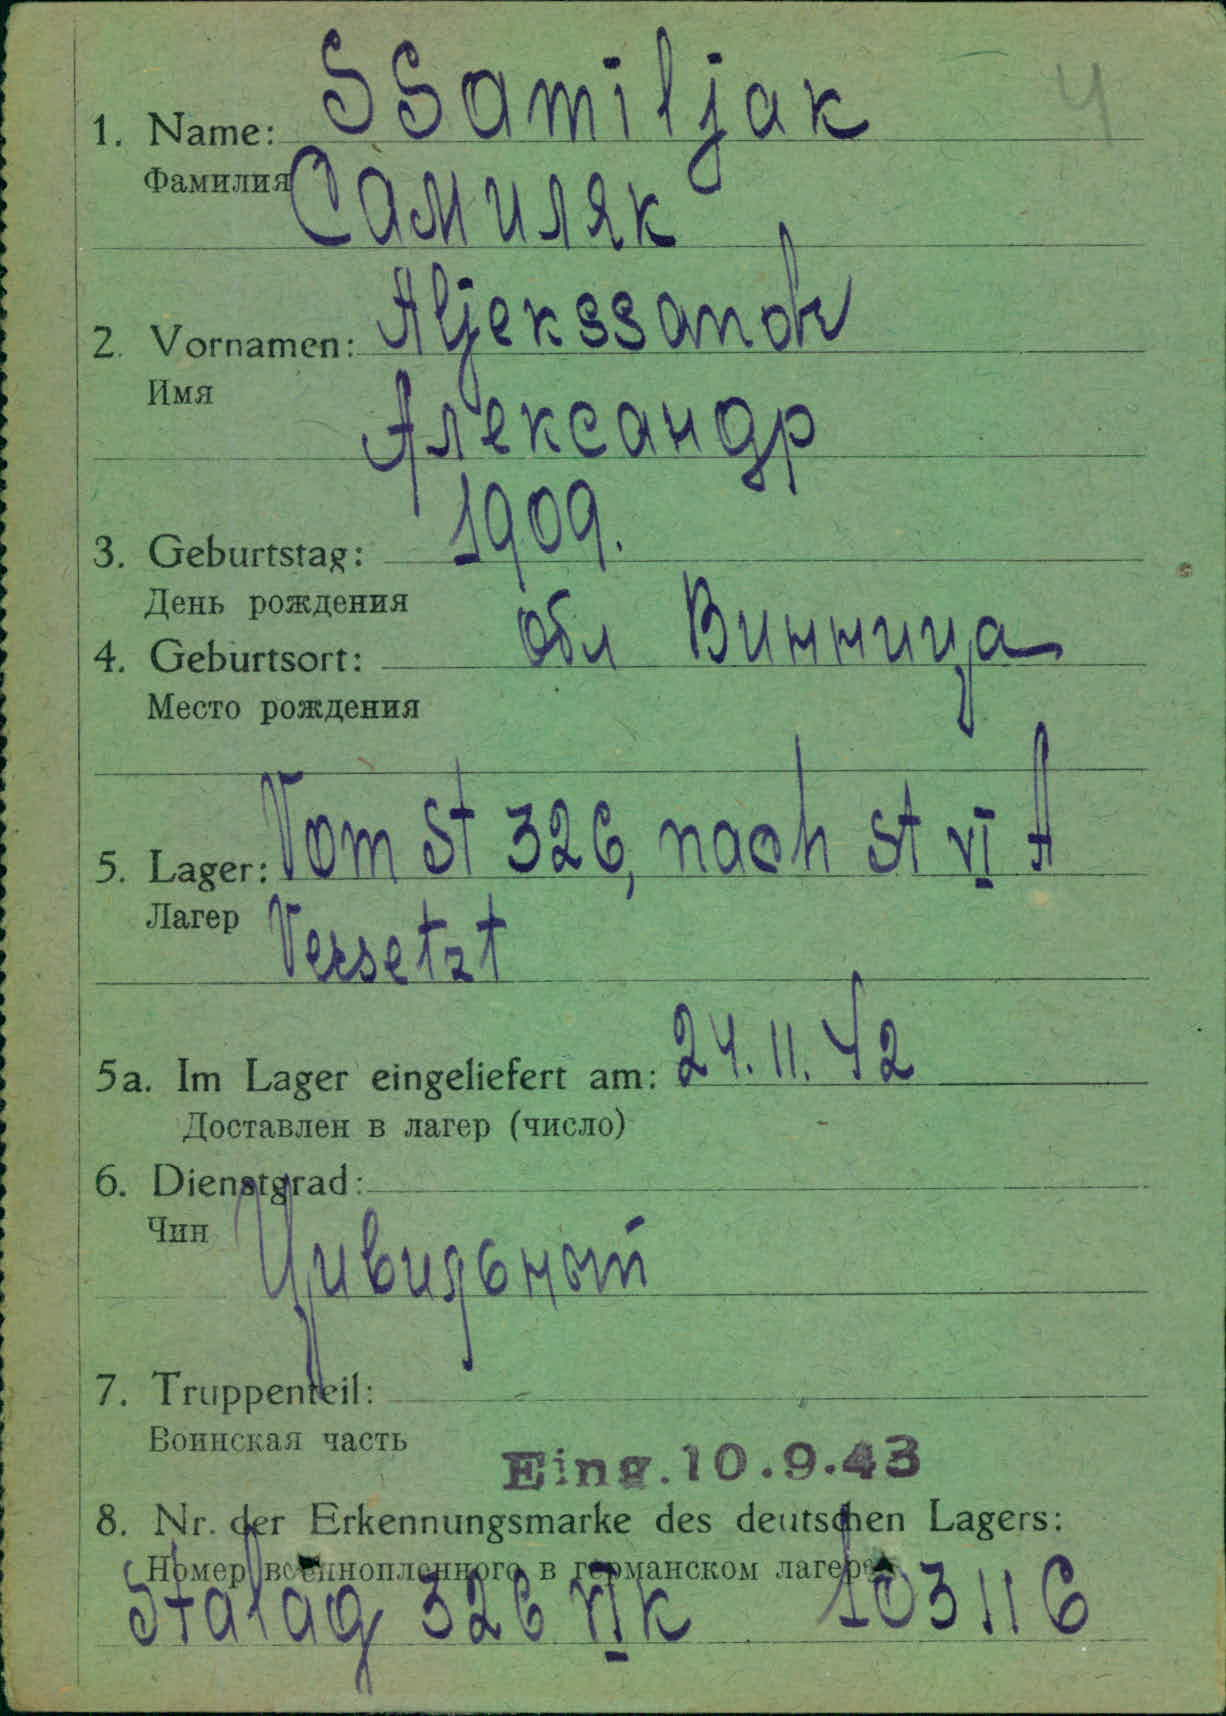 4
1. Name: SSamiljak
Фамилия Самиляк
2. Vornamen: Aljekssandr
Имя
Александр
3. Geburtstag: 1909.
День рождения
4. Geburtsort: обл Винница
Место рождения
5. Lager: Vom St 326, nach St VI A
Лагер Versetzt
5a. Im Lager eingeliefert am: 24.11.42
Доставлен в лагер (число)
6. Dienstgrad:
Чин Цивильный
7. Truppenteil:
Воинская часть
Eing. 10.9.43
8. Nr. der Erkennungsmarke des deutschen Lagers:
Номер военнопленного в германском лагере
Stalag 326 VI K 103116